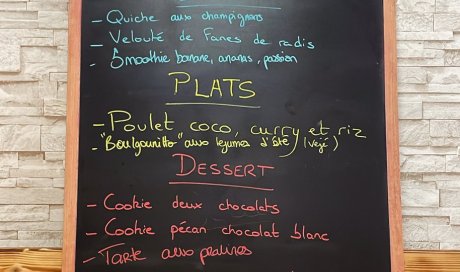 - Quiche aux champignons
- Velouté de Fanes de radis
- Smoothie banane, ananas, passion
PLATS
- Poulet coco, curry et riz
- "Boulgounitto" aux légumes d'été (végé)
DESSERT
- Cookie deux chocolats
- Cookie pécan chocolat blanc
- Tarte aux pralines